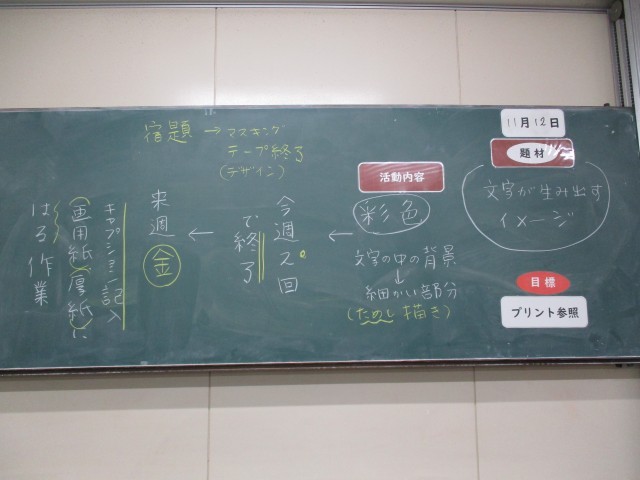 11月12日
題材
文字が生み出す
イメージ
目標
プリント参照
活動内容
彩色
文字の中の背景
↓
細かい部分
(ためし描き)
←
今週2回
で終了
←
来週
金
キャプション記入
(画用紙)(厚紙)に
はる作業
宿題→マスキング
テープ終了
(デザイン)